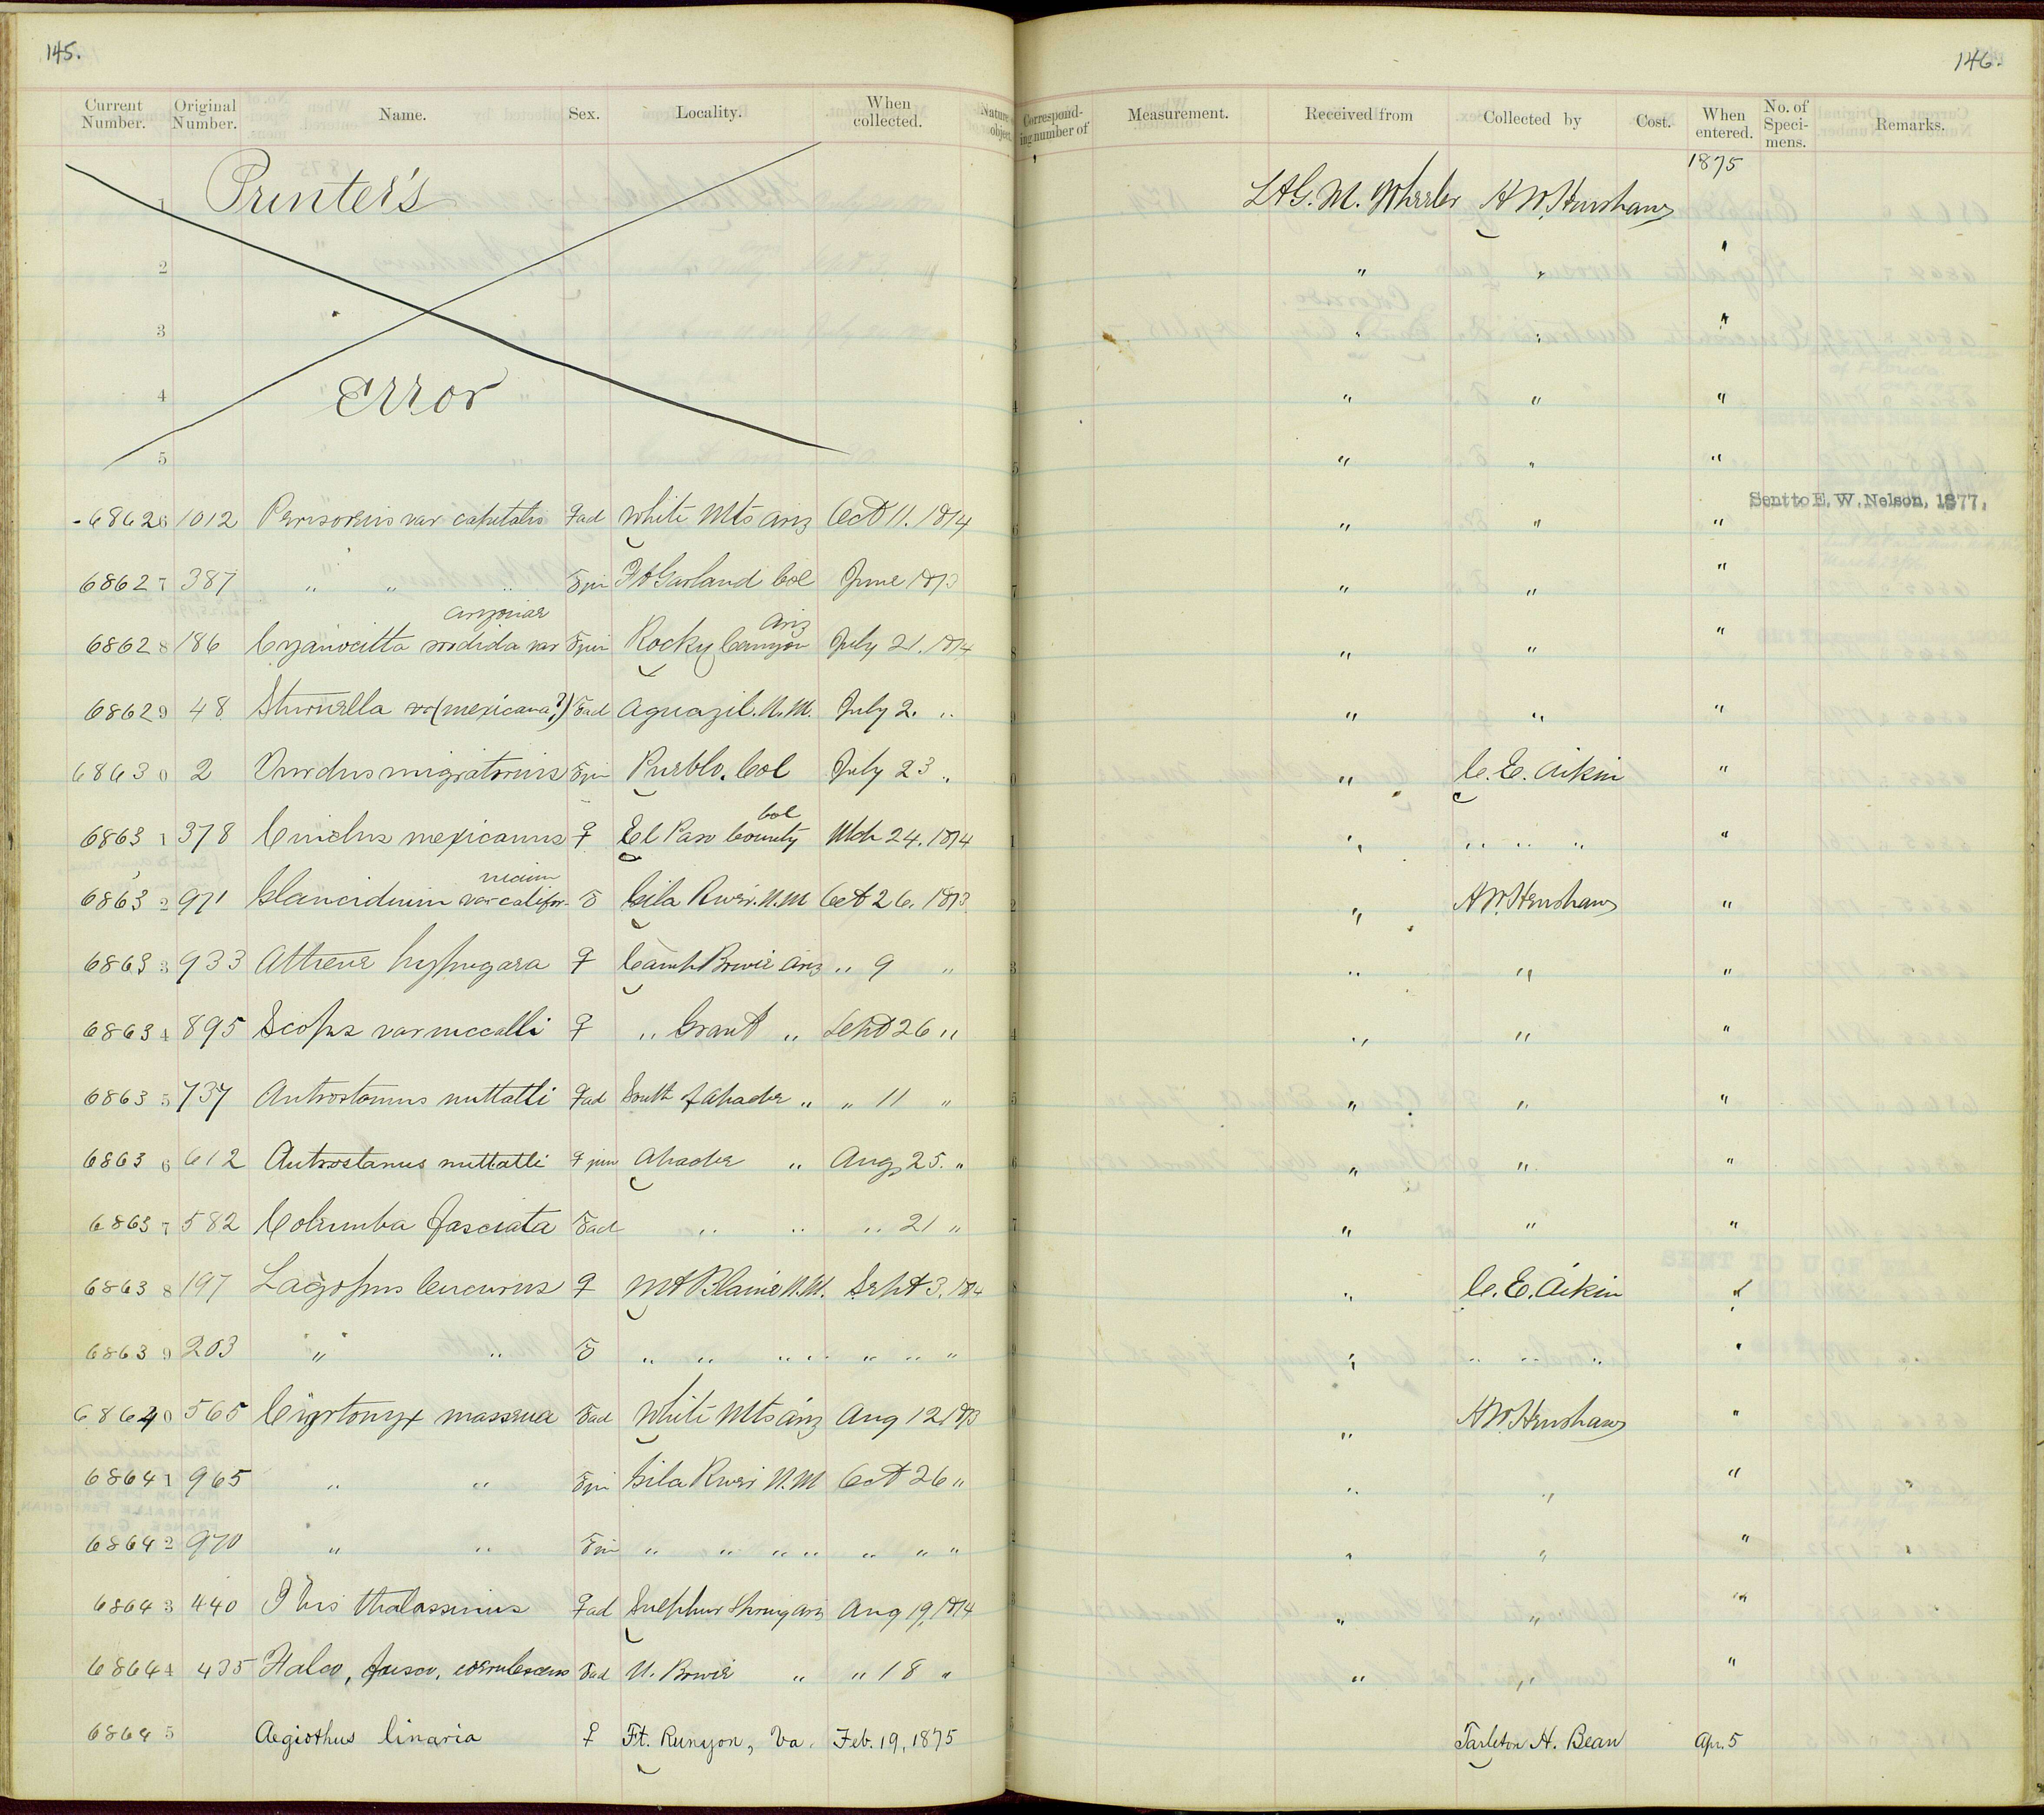 145.
146.
Current Number. Original Number. Name. Sex. Locality. When collected. Nature object. Correspond-ing number of Measurement. Received from Collected by Cost. When entered. No. of Speci-mens. Remarks.
1875
1 Printer's Lt G. M. Wheeler H W. Henshaw
2 " " "
3 " " "
4 Error " " "
5 " " "
68626 1012 Perisoreus var capitalis ♀ad White Mts Ariz Oct 11. 1874 " " " Sent to E. W. Nelson, 1877.
68627 387 " " " ♂ju Ft Garland Col June 1873 " " "
arizonae Ariz
68628 186 Cyanocitta sordida var ♂juv Rocky Canyon July 21. 1874 " " "
68629 48 Sturnella (mexicana?) ♂ad Aguazil. N.M. July 2. " " " "
68630 2 Turdus migratorius ♂ju Pueblo. Col July 23 " " C. E. Aikin "
Col
68631 378 Cinclus mexicanus ♀ El Paso County Mch 24. 1874 " " " " "
nicum
68632 971 Glaucidium var califor- ♂ Gila River. N.M Oct 26. 1873 " H W. Henshaw "
68633 933 Athene hypugaea ♀ Camp Bowie Ariz " 9 " " " "
68634 895 Scops var mccalli ♀ " Grant " Sept 26 " " " "
68635 737 Antrostomus nuttalli ♀ad South of Apache " " 11 " " " "
68636 612 Antrostomus nuttalli ♀ juv Apache " Aug 25. " " " "
68637 582 Columba fasciata ♂ad " " " 21 " " " "
68638 197 Lagopus leucurus ♀ Mt Blaine N.M. Sept 3. 1874 " C. E. Aikin "
68639 203 " " ♂ " " " " " " " " " " " "
68640 565 Cyrtonyx massena ♂ad White Mts Ariz Aug 12 1873 " H W. Henshaw "
68641 965 " " ♂ju Gila River N.M Oct 26 " " " "
68642 970 " " ♂ju " " " " " " " " " "
68643 440 Ibis thalassinus ♀ad Sulphur Spring Ariz Aug 19, 1874 " " "
68644 435 Falco, fusco, coerulescens ♂ad N. Bowie " " 18 " " " "
68645 Aegiothus linaria ♀ Ft. Runyon, Va. Feb. 19, 1875 Tarleton H. Bean Apr. 5